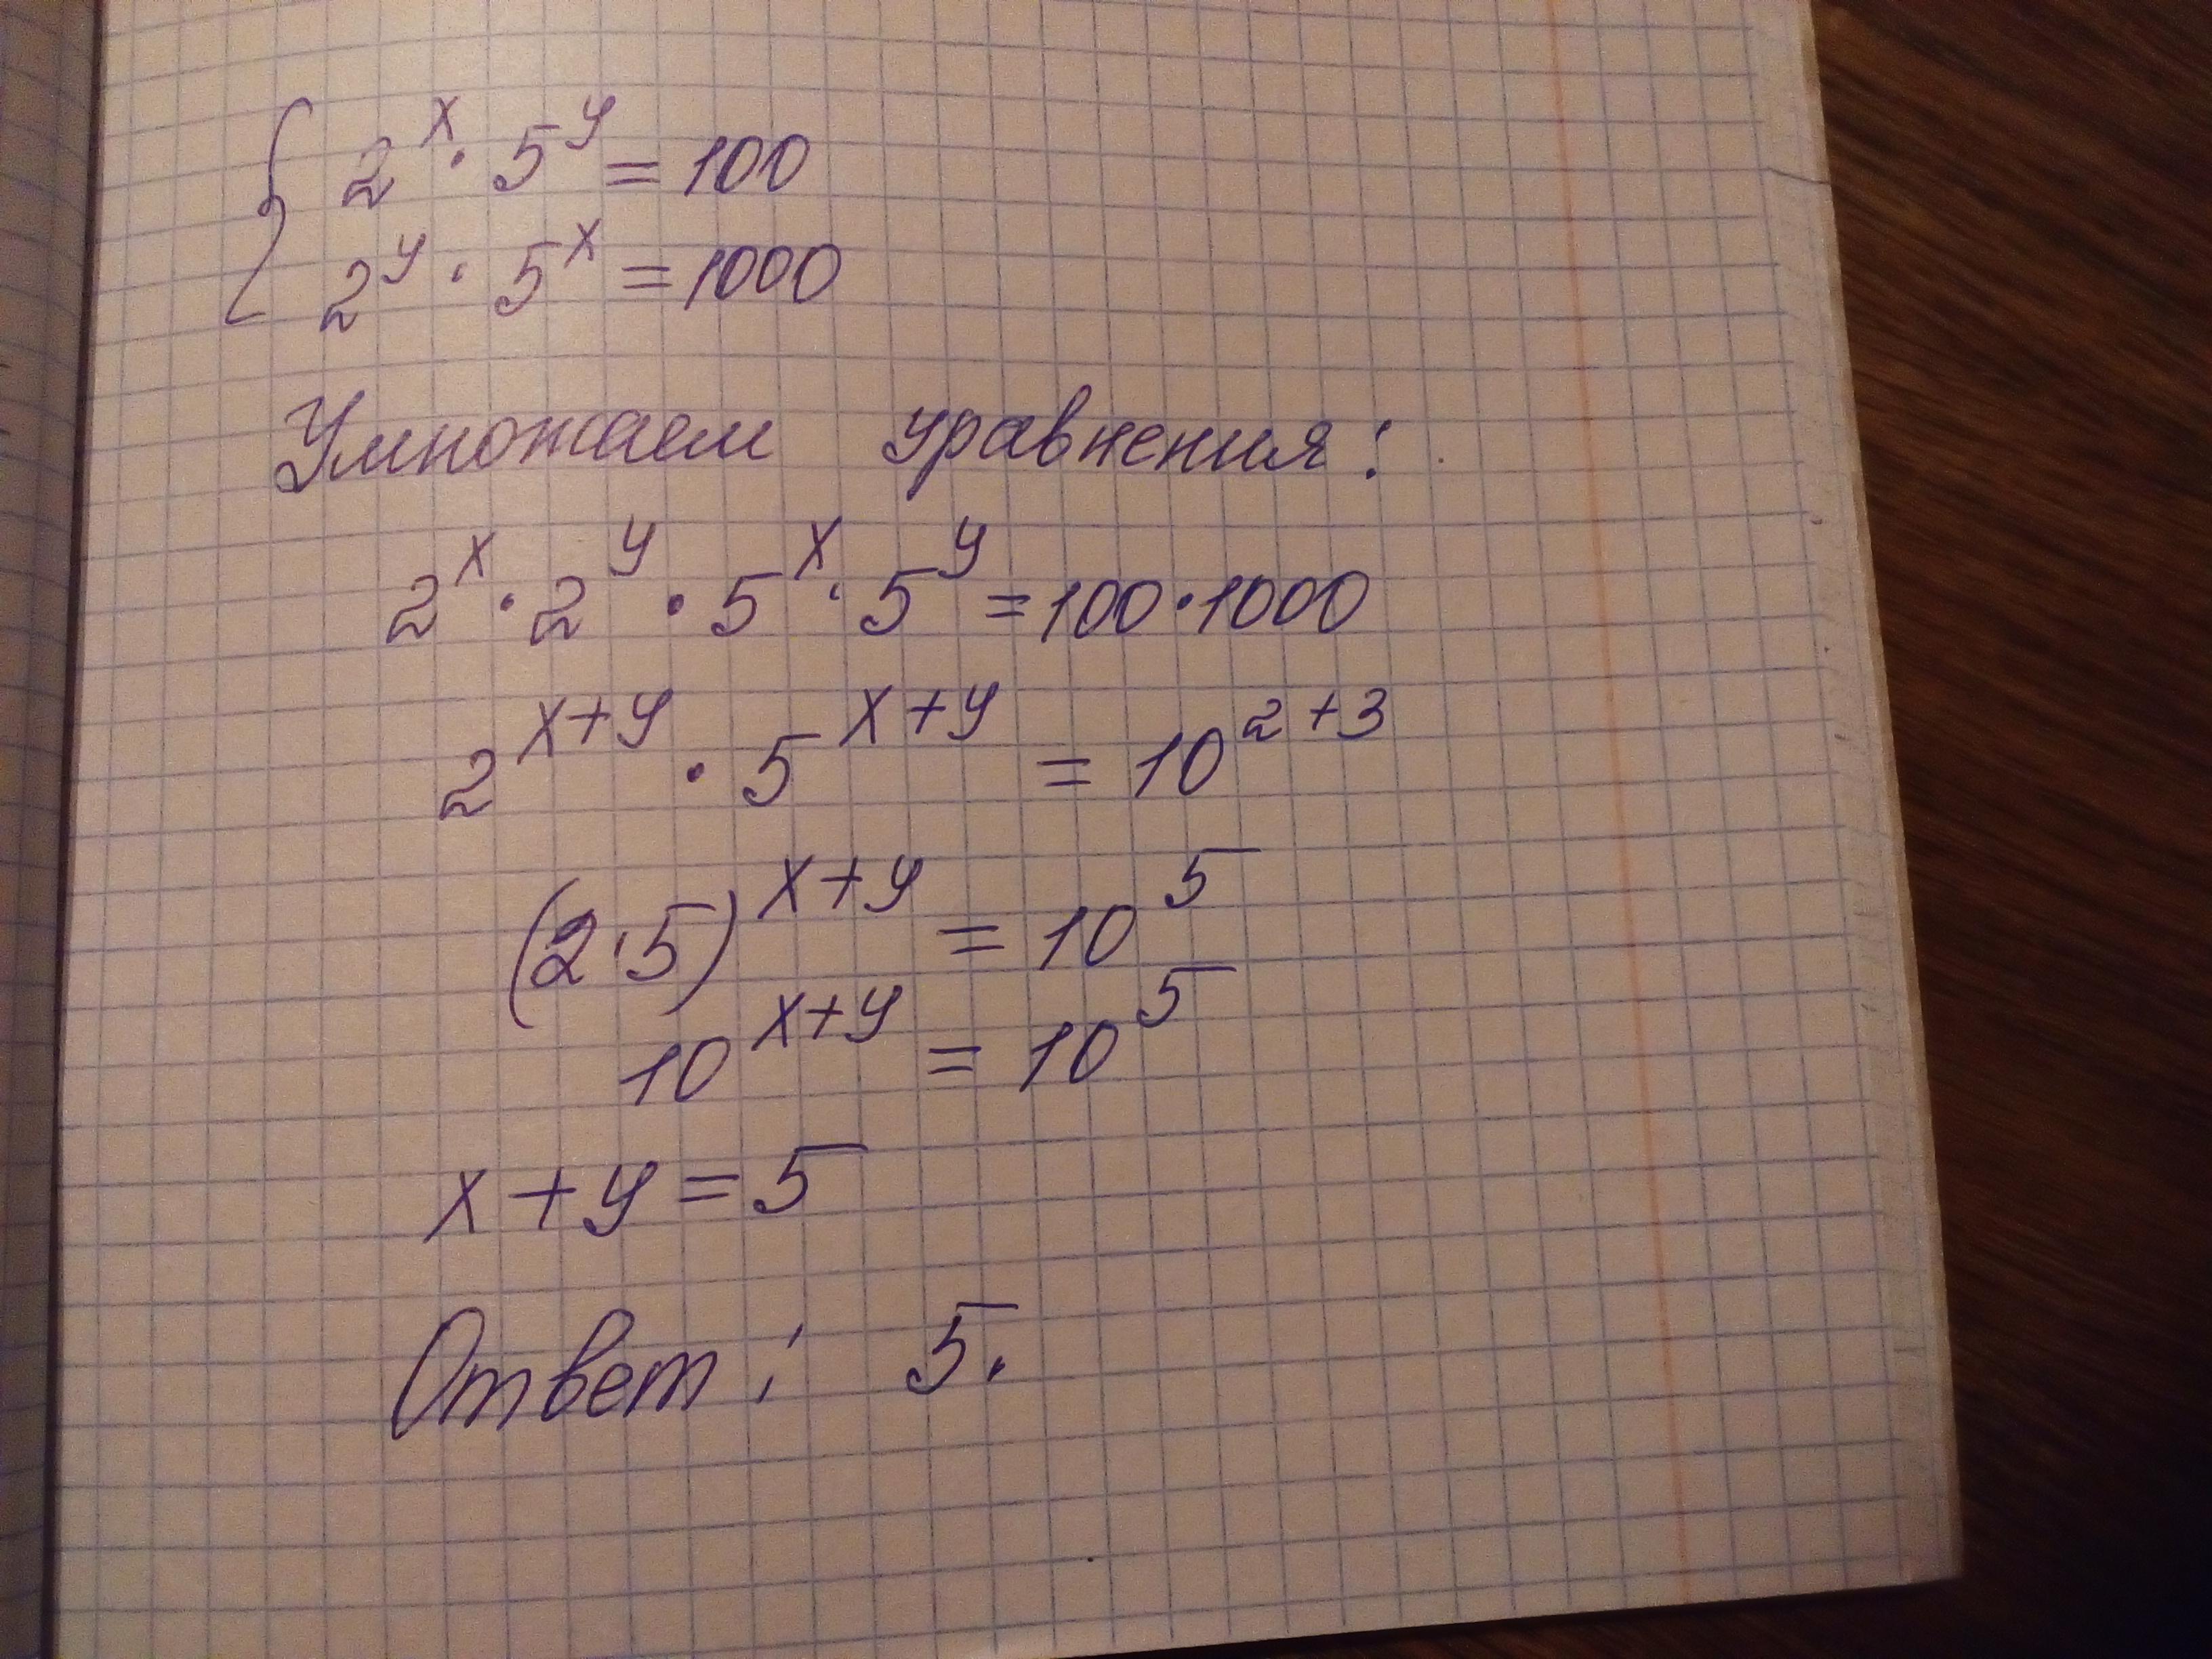 2^x · 5^y = 100
2^y · 5^x = 1000
Умножаем уравнения:
2^x · 2^y · 5^x · 5^y = 100 · 1000
2^(x+y) · 5^(x+y) = 10^(2+3)
(2·5)^(x+y) = 10^5
10^(x+y) = 10^5
x+y=5
Ответ: 5.